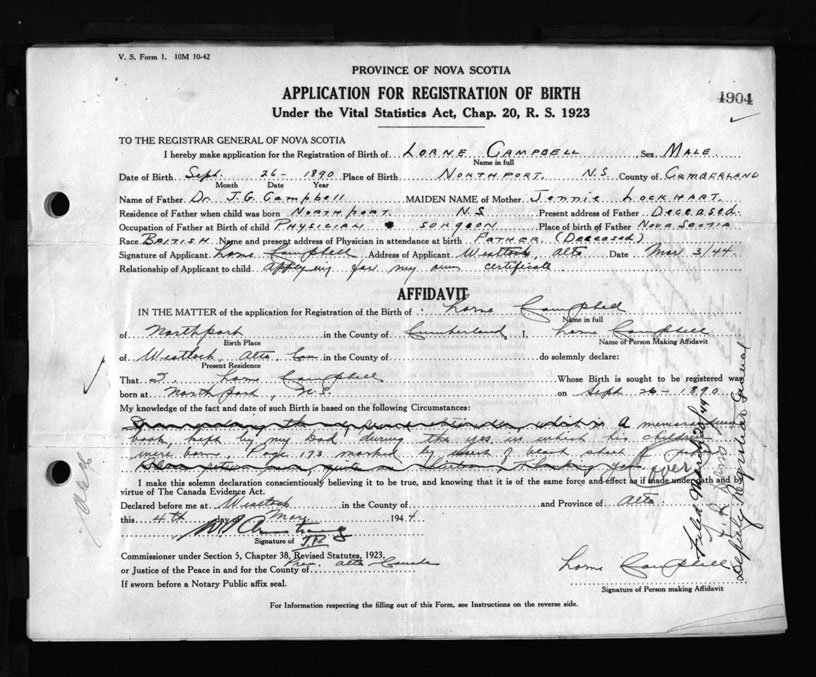 V. S. Form 1. 10M 10-42
PROVINCE OF NOVA SCOTIA
APPLICATION FOR REGISTRATION OF BIRTH
1904
Under the Vital Statistics Act, Chap. 20, R. S. 1923
TO THE REGISTRAR GENERAL OF NOVA SCOTIA
I hereby make application for the Registration of Birth of LORNE CAMPBELL Sex MALE
Name in full
Date of Birth Sept. 26 - 1890 Place of Birth NORTHPORT, N.S. County of CUMBERLAND
Month Date Year
Name of Father Dr. J.G. Campbell MAIDEN NAME of Mother Jennie LOCKHART.
Residence of Father when child was born NORTHPORT N.S Present address of Father DECEASED.
Occupation of Father at Birth of child PHYSICIAN & SURGEON Place of Birth of Father NOVA SCOTIA
Race BRITISH Name and present address of Physician in attendance at birth FATHER. (DECEASED)
Signature of Applicant Lorne Campbell Address of Applicant Westlock, Alta Date Mar 3/44.
Relationship of Applicant to child Applying for my own certificate
AFFIDAVIT
IN THE MATTER of the application for Registration of the Birth of: Lorne Campbell
Name in full
of Northport in the County of Cumberland I, Lorne Campbell
Birth Place Name of Person Making Affidavit
of Westlock, Alta, Can in the County of do solemnly declare:
Present Residence
That I, Lorne Campbell Whose Birth is sought to be registered was
born at Northport, N.S. on Sept 26 - 1890
My knowledge of the fact and date of such Birth is based on the following Circumstances:
A memorandum
book, kept by my Dad during the yrs in which his children
were born. Page 173 marked by
(over)
I make this solemn declaration conscientiously believing it to be true, and knowing that it is of the same force and effect as if made under oath and by
virtue of The Canada Evidence Act.
Declared before me at Westlock in the County of and Province of Alta.
this 4th day of Mar 1944
Signature of J.P.
Commissioner under Section 5, Chapter 38, Revised Statutes, 1923,
or Justice of the Peace in and for the County of Prov. Alta Canada
Lorne Campbell
If sworn before a Notary Public affix seal.
Signature of Person making Affidavit
For Information respecting the filling out of this Form, see Instructions on the reverse side.
Deputy Registrar General